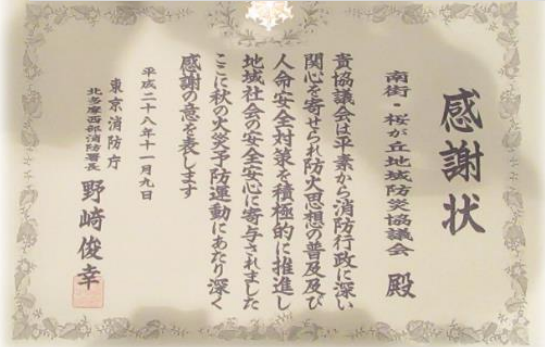 感謝状
南街・桜が丘地域防災協議会 殿
貴協議会は平素から消防行政に深い
関心を寄せられ防火思想の普及及び
人命安全対策を積極的に推進し
地域社会の安全安心に寄与されました
ここに秋の火災予防運動にあたり深く
感謝の意を表します
平成二十八年十一月九日
東京消防庁
北多摩西部消防署長 野﨑俊幸